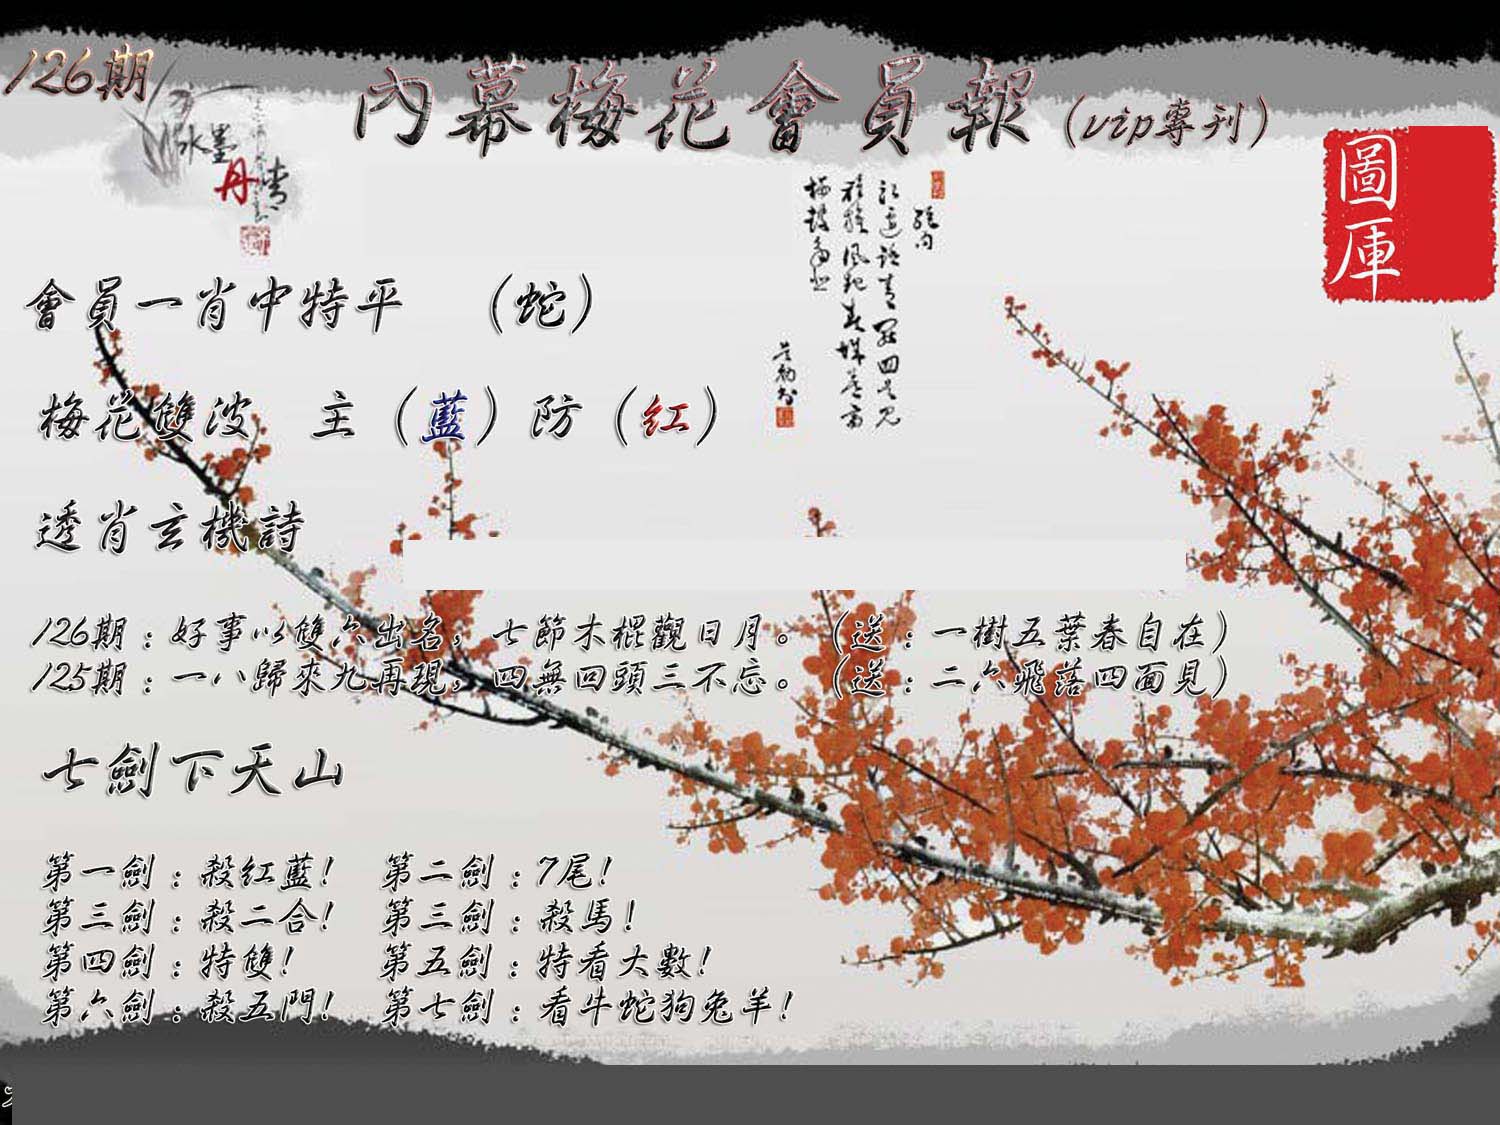 126期
內幕梅花會員報(vip專刊)
水墨
丹青
圖庫
會員一肖中特平 (蛇)
梅花雙波 主(藍)防(紅)
透肖玄機詩
126期:好事以雙六出名,七節木棍觀日月。(送:一樹五葉春自在)
125期:一八歸來九再現,四無回頭三不忘。(送:二六飛落四面見)
七劍下天山
第一劍:殺紅藍! 第二劍:7尾!
第三劍:殺二合! 第三劍:殺馬!
第四劍:特雙! 第五劍:特看大數!
第六劍:殺五門! 第七劍:看牛蛇狗兔羊!